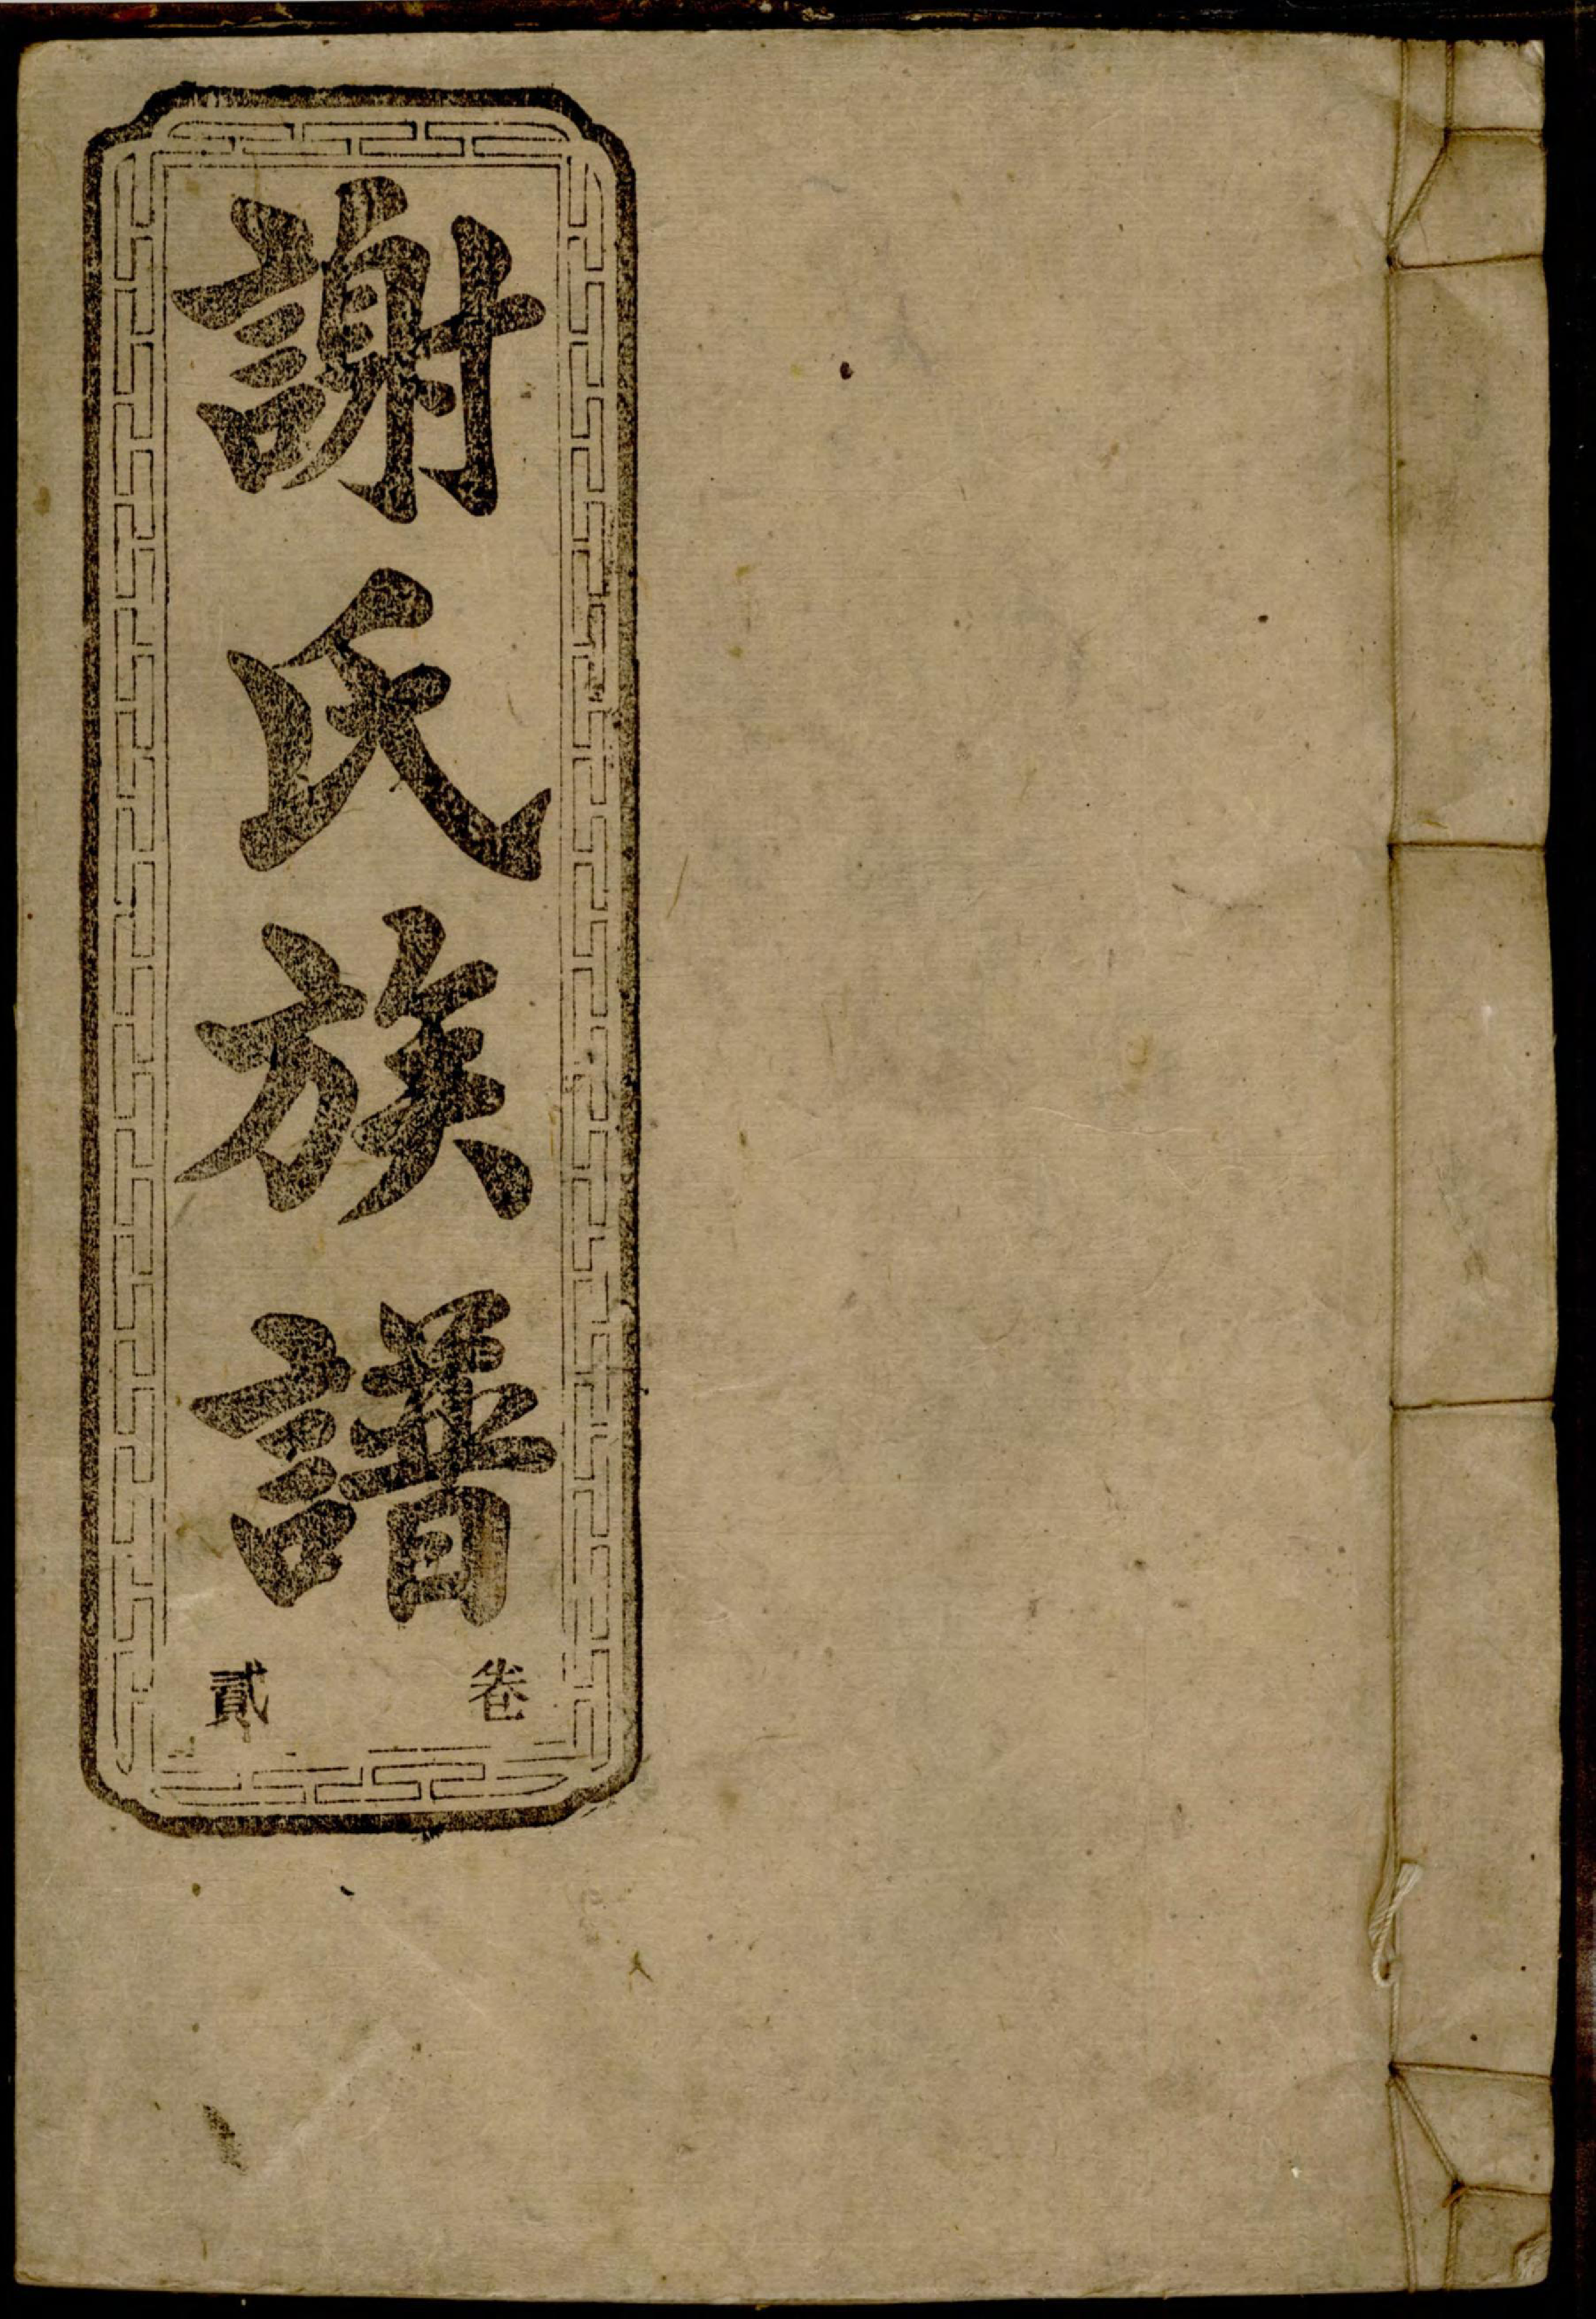 謝氏族譜
卷貳